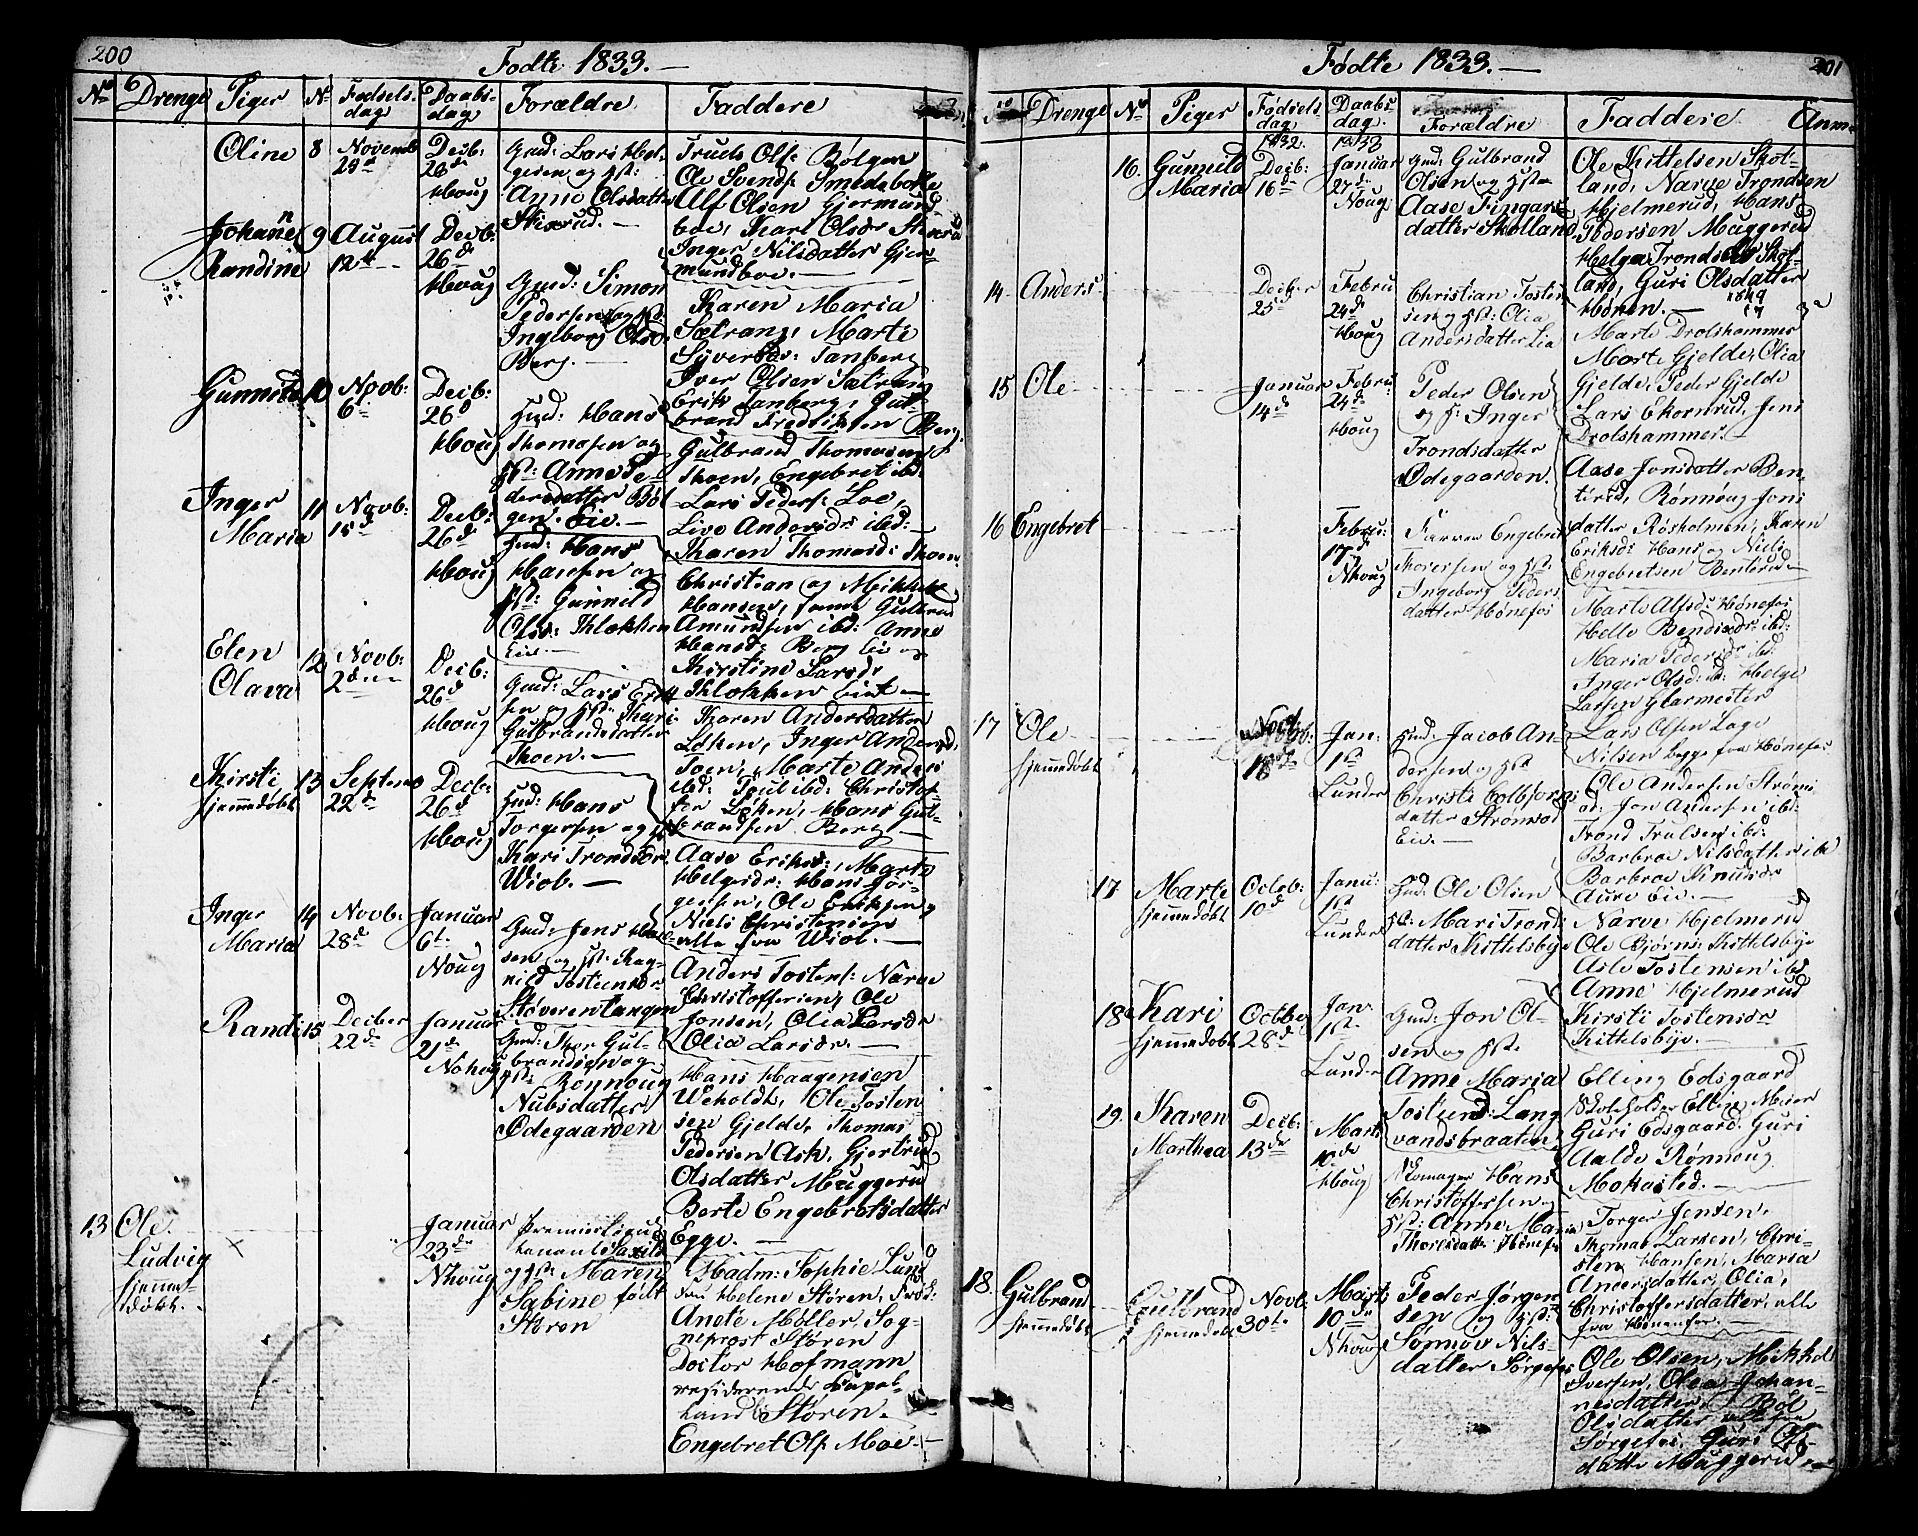 200
Fødte 1833.
No Drenge Piger No Fødselsdag Daabsdag Forældre Faddere
Oline 8 Novemb 29de Decb: 26de Houg
Gmd: Lars Helgesen og Hst: Anne Olsdatter Stixrud.
Truels Ols: Bølgen
Ole Svends: Smedsbakke
Alf Olsen Gjermund
boe, Kari Olsdr
Inger Nilsdatter Gjermundboe.
Johanne Randine 9 August 12te Decb: 26de Houg
Gmd: Simon Pedersen og Hst: Ingeborg Olsd: Berg.
Karen Maria
Sætrang, Marte
Syversdr: Tanberg
Iver Olsen Sætrang
Erik Tanberg, Gulbrand Fredriksen Berg.
Gunnild 10 Novb: 6te Decb: 26d Houg
Hmd: Hans Thomasen og Hst: Anne Pedersdatter Bølgen. Eie.
Gulbrand Thomasen
Moen, Engebret ibd.
Lars Peders: Loe,
Live Andersdr: ibd:
Karen Thomasd: Moen
Inger Maria 11 Novb: 15d Decb: 26d Houg
Hmd: Hans Hansen og Hst: Gunnild Olsd: Klokken Eie.
Christian og Mikkel
Hansen, Gulbrand
Amundsen ibd: Anne
Hansd: Berg Eie og
Kirstine Larsd:
Klokken Eiet
Elen Olava 12 Novb: 2den Decb: 26d Houg
Gmd: Lars Eriksen og Hst: Kari Gulbrandsdatter Moen.
Karen Andersdatter
Løken, Inger Andersd:
Moen, Marte Anders
ibd: Poul ibd: Christoffer Løken, Hans Gulbrandsen Berg
Kirsti hjemmedøbt 13 Septemb 22de Decb: 26d Houg
Hmd: Hans Torgersen og Hst: Kari Trondsdr Wiob.
Aase Eriksd:, Marte
Helgesdr: Hans Jørgensen, Ole Eriksen,
Niels Christensen
alle fra Wiob.
Inger Maria 14 Novb: 28de Januar 6t. Noug
Gmd: Jens Hansen og Hst: Ragnild Tostensdr Støverentangen
Anders Tostens: Narve
Christoffersen, Ole
Jonsen, Olia Larsdr
Olia Larsdr.
Randi 15 Decber 22de Januar 21de Nohoug
Gmd: Thor Gulbrandsen og Hst: Rønnoug Nubsdatter Ødegaarden
Hans Haagensen
Weholdt, Ole Tostensen Gjelde, Thomas
Pedersen Ask, Gjertrud
Olsdatter Muggerud
Berte Engebretsdatter
Egge.
13 Ole Ludvig hjemmedøbt. Januar 23de Nhoug
Premierlieutenant Saxild og Hst: Maren Sabine født Støren
Madm: Sophie Lund
Helene Støren, Frøk:
Anete Møller, Sogneprost Støren
Doctor Hofmann
residerende Kapelland Støren.
Engebret Ols: Moe.
201
Fødte 1833.
No Drenge No Piger Fødselsdag Daabsdag. Forældre Faddere Anm.
1832. 1833
16. Gunnild Maria Decb: 16d Januar 27de Noug
Gmd: Gulbrand Olsen og Hst: Aase Fingarsdatter Skolland
Ole Kittelsen Skolland, Narve Trondsen
Hjelmerud, Hans
Pedersen Muggerud
Helga Trondsdr Skolland, Guri Olsdatter
Hønen.
1849
14 Anders Decber 25d Febru 24de Houg
Christian Tostensen og Hst: Olia Andersdatter Lia
Marte Drolshammer
Marte Gjelde, Olia
Gjelde, Peder Gjelde
Lars Ekornrud, Jens
Drolshammer.
15 Ole Januar 14de Febru: 24de Houg
Peder Olsen og H: Inger Trondsdatter Ødegaarden.
Aase Jonsdatter Benterud, Rønnoug Jonsdatter Røsholmen, Karen
Eriksd: Hans og Niels
Engebretsen Benterud
16 Engebret Febru: 17de Nhoug
Farver Engebret Thoresen og Hst: Ingeborg Pedersdatter Hønefos
Marte Alfsd: Hønefos
Helle Bendixdr: ibd:
Maria Pedersdr ibd:
Inger Olsd: ibd: Helge
Larsen Glarmester
Lars Olsen Lage
Nilsen begge fra Hønefos
17 Ole hjemmedøbt 18de Jan: 1st Lunder
Hmd: Jacob Andersen og Hst: Christi Colbjørnsdatter Strømsod Eie.
Ole Andersen Strømsod: Jon Andersen ibd:
Trond Trulsen ibd:
Barbroe Nilsdatter ibd
Barbroe
Aure Eie.
17 Marte hjemmedøbt Octob: 10d Janu: 1st Lunder
Gmd: Ole Olsen Hst: Mari Trondsdatter Kittelsbye
Narve Hjelmerud
Ole Bjørns: Kittelsbye
Asle Tostensen ibd
Anne Hjelmerud
Kirsti Tostensdr
Kittelsbye.
18 Kari hjemmedøbt Octbr 28d Jan: 1st. Lunder
Gmd: Jon Olsen og Hst: Anne Maria Tostensd: Langvandsbraaten.
Elling Edsgaard
Skoleholder Elling Moen
Guri Edsgaard. Guri
Aalde Rønnoug
Mokasted.
19. Karen Marthea Decb: 13de Marts 10de Houg
Skomager Hans Christoffersen og Hst: Anne Maria Thorlsdatter Hønefos
Torger Jensen,
Thomas Larsen, Christen Hansen, Maria
Andersdatter, Olia,
Christoffersdatter, alle
fra Hønenfos.
18. Gulbrand hjemmedøbt Gulbrand hjemmedøbt Novb: 30te Marts 10de Nhoug
Peder Jørgensen og Hst: Sønnøv Nilsdatter Sørgefos
Ole Olsen, Mikkel
Iversen, Olea Johannesdatter, Bol
Olsdatter alle fra
Sørgefos, Guri Olsdatter Muggerud